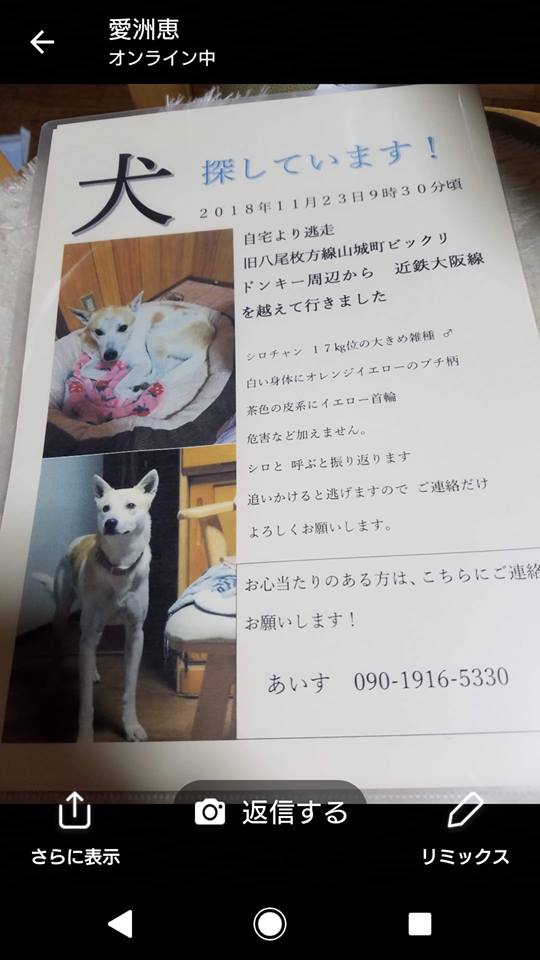 愛洲恵
オンライン中
犬 探しています！
２０１８年１１月２３日９時３０分頃
自宅より逃走
旧八尾枚方線山城町ビックリ
ドンキー周辺から　近鉄大阪線
を越えて行きました
シロチャン　１７㎏位の大きめ雑種 ♂
白い身体にオレンジイエローのブチ柄
茶色の皮系にイエロー首輪
危害など加えません。
シロと 呼ぶと振り返ります
追いかけると逃げますので ご連絡だけ
よろしくお願いします。
お心当たりのある方は、こちらにご連絡
お願いします！
あいす　090-1916-5330
返信する
さらに表示
リミックス